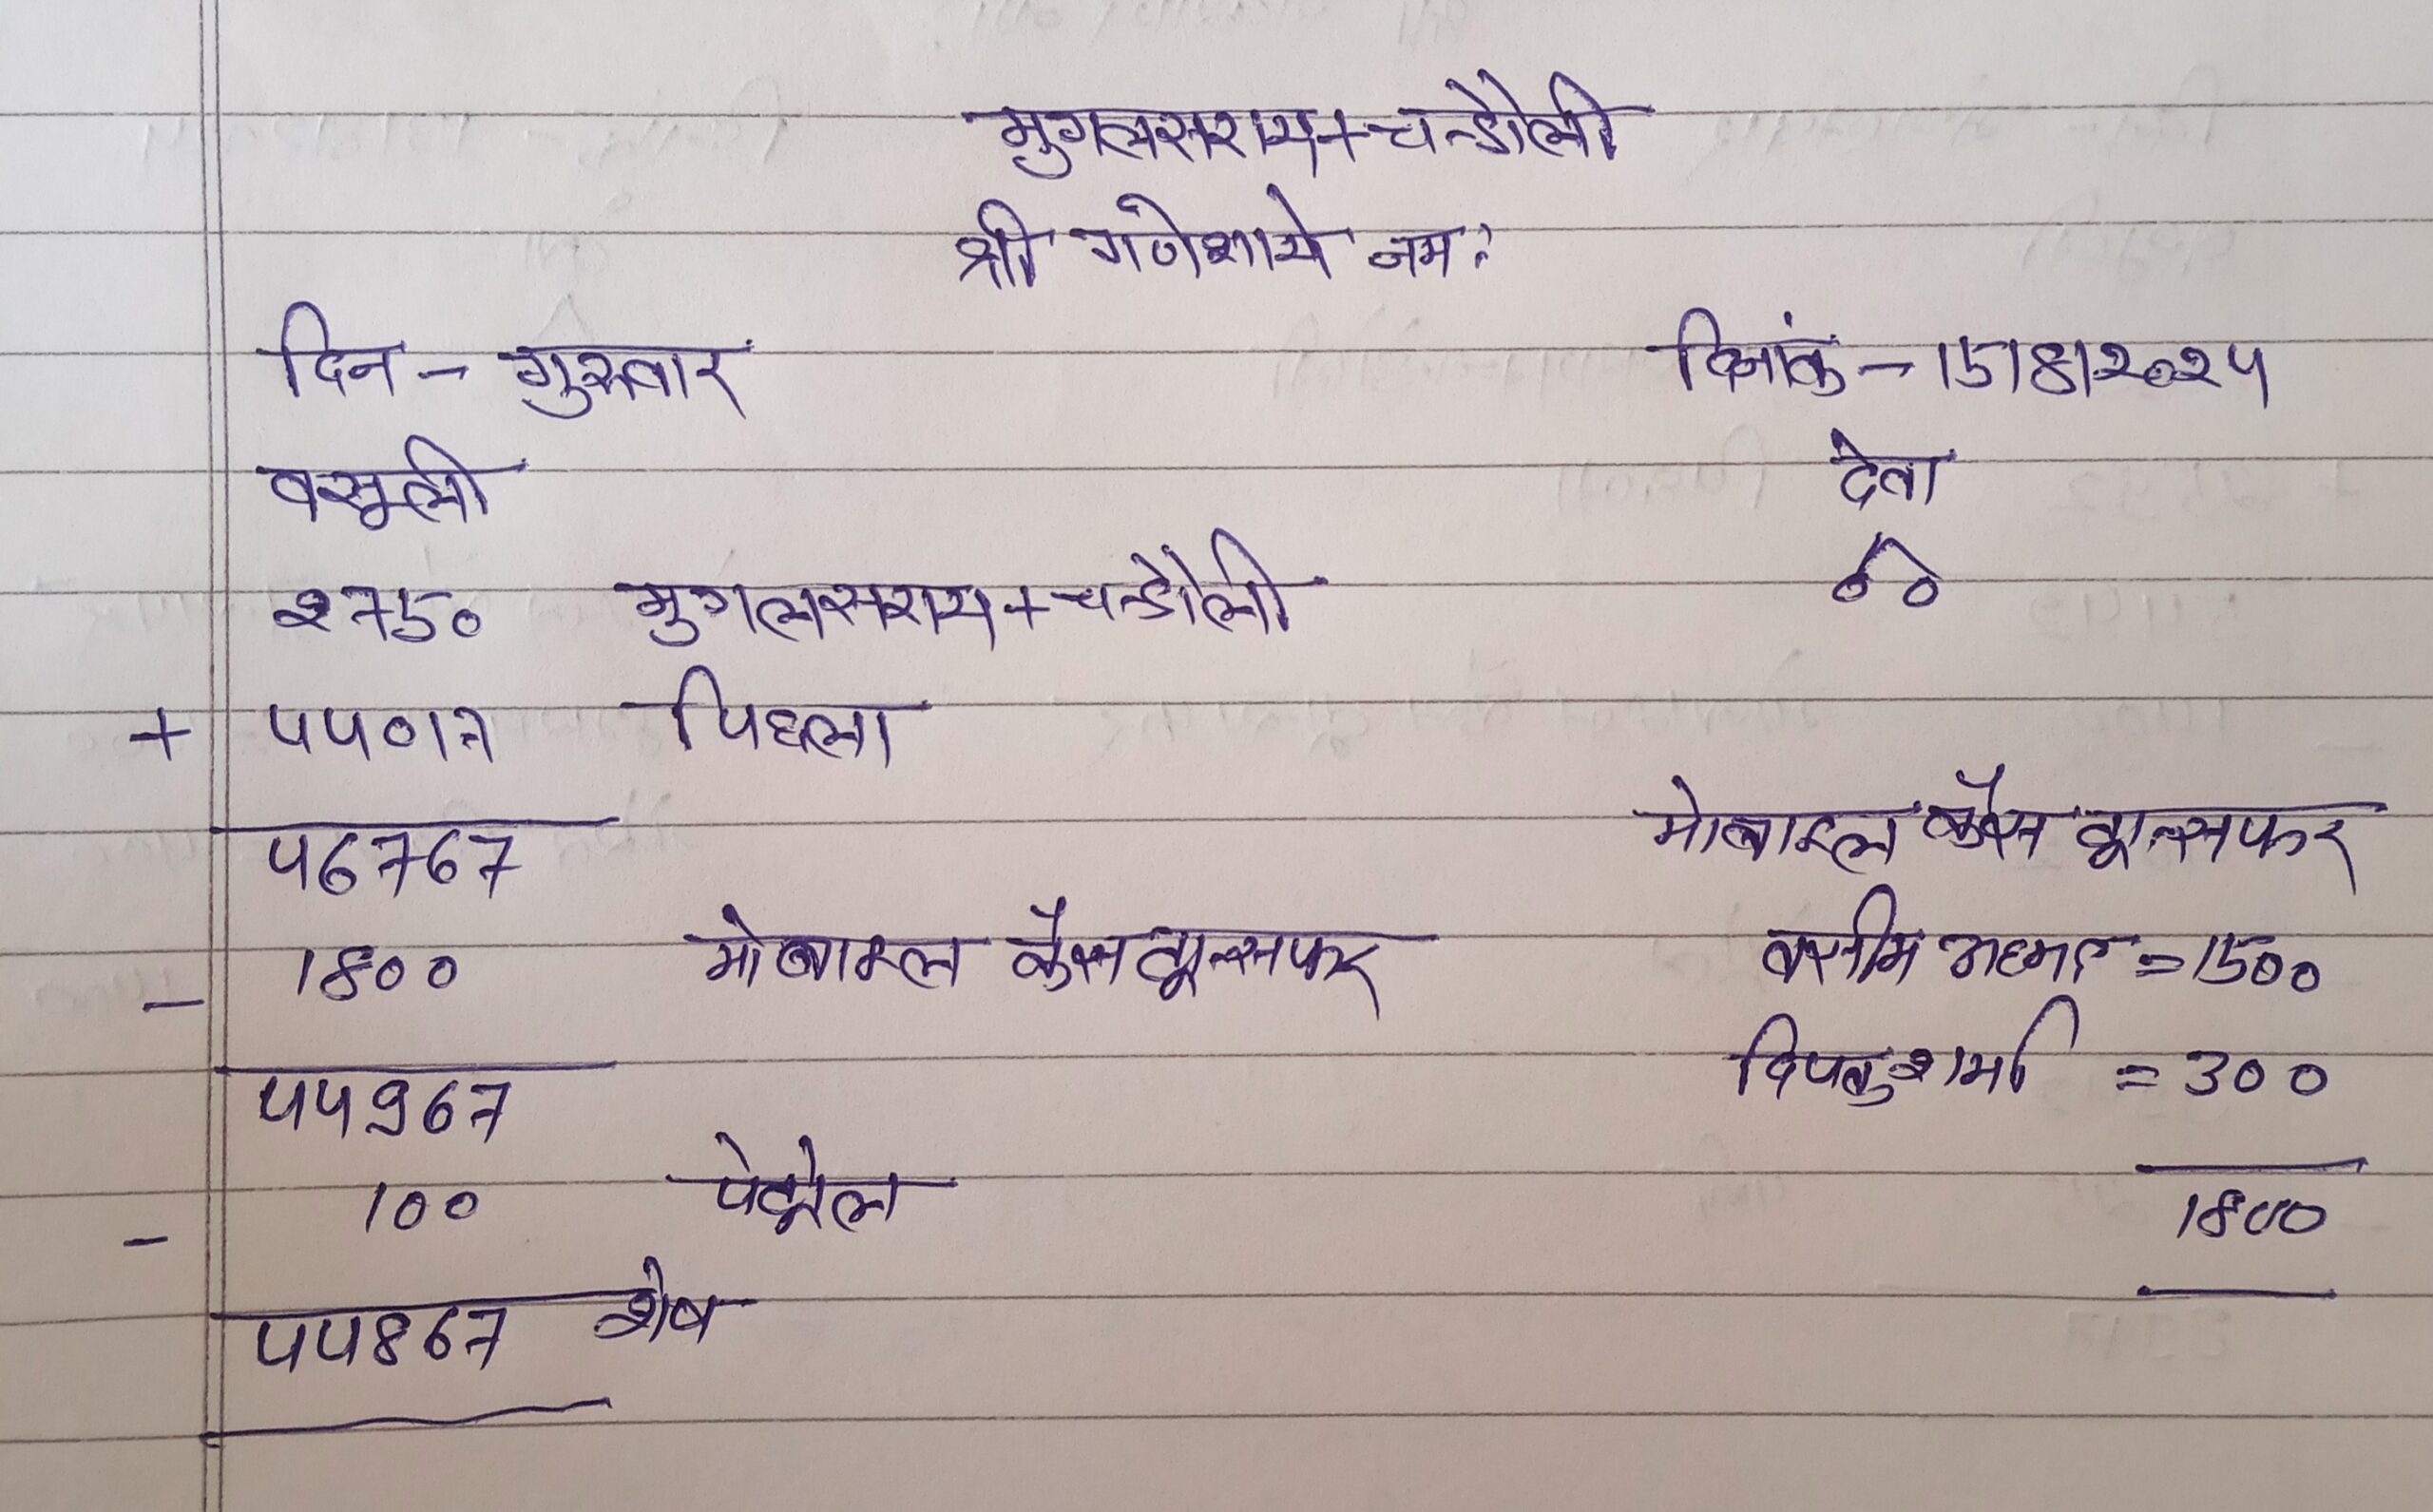 मुगलसराय+चन्डौली
श्री गणेशाये नमः
दिन - गुरुवार दिनांक - 15/8/2024
वसूली देना
2750 मुगलसराय+चन्डौली 00
+ 44017 पिछला
46767 मोबाइल कैस ट्रान्सफर
- 1800 मोबाइल कैस ट्रान्सफर वसीम अहमद = 1500
44967 दिपक शर्मा = 300
- 100 पेट्रोल 1800
44867 शेष